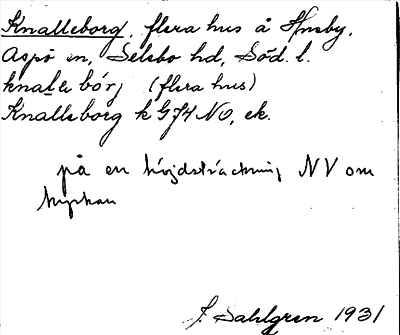 Knalleborg, flera hus å Husby,
Aspö sn, Selebo hd, Söd. l.
knalebórj (flera hus)
Knalleborg k G74 NO, ek.
på en höjdsträckning NV om
kyrkan
J. Sahlgren 1931